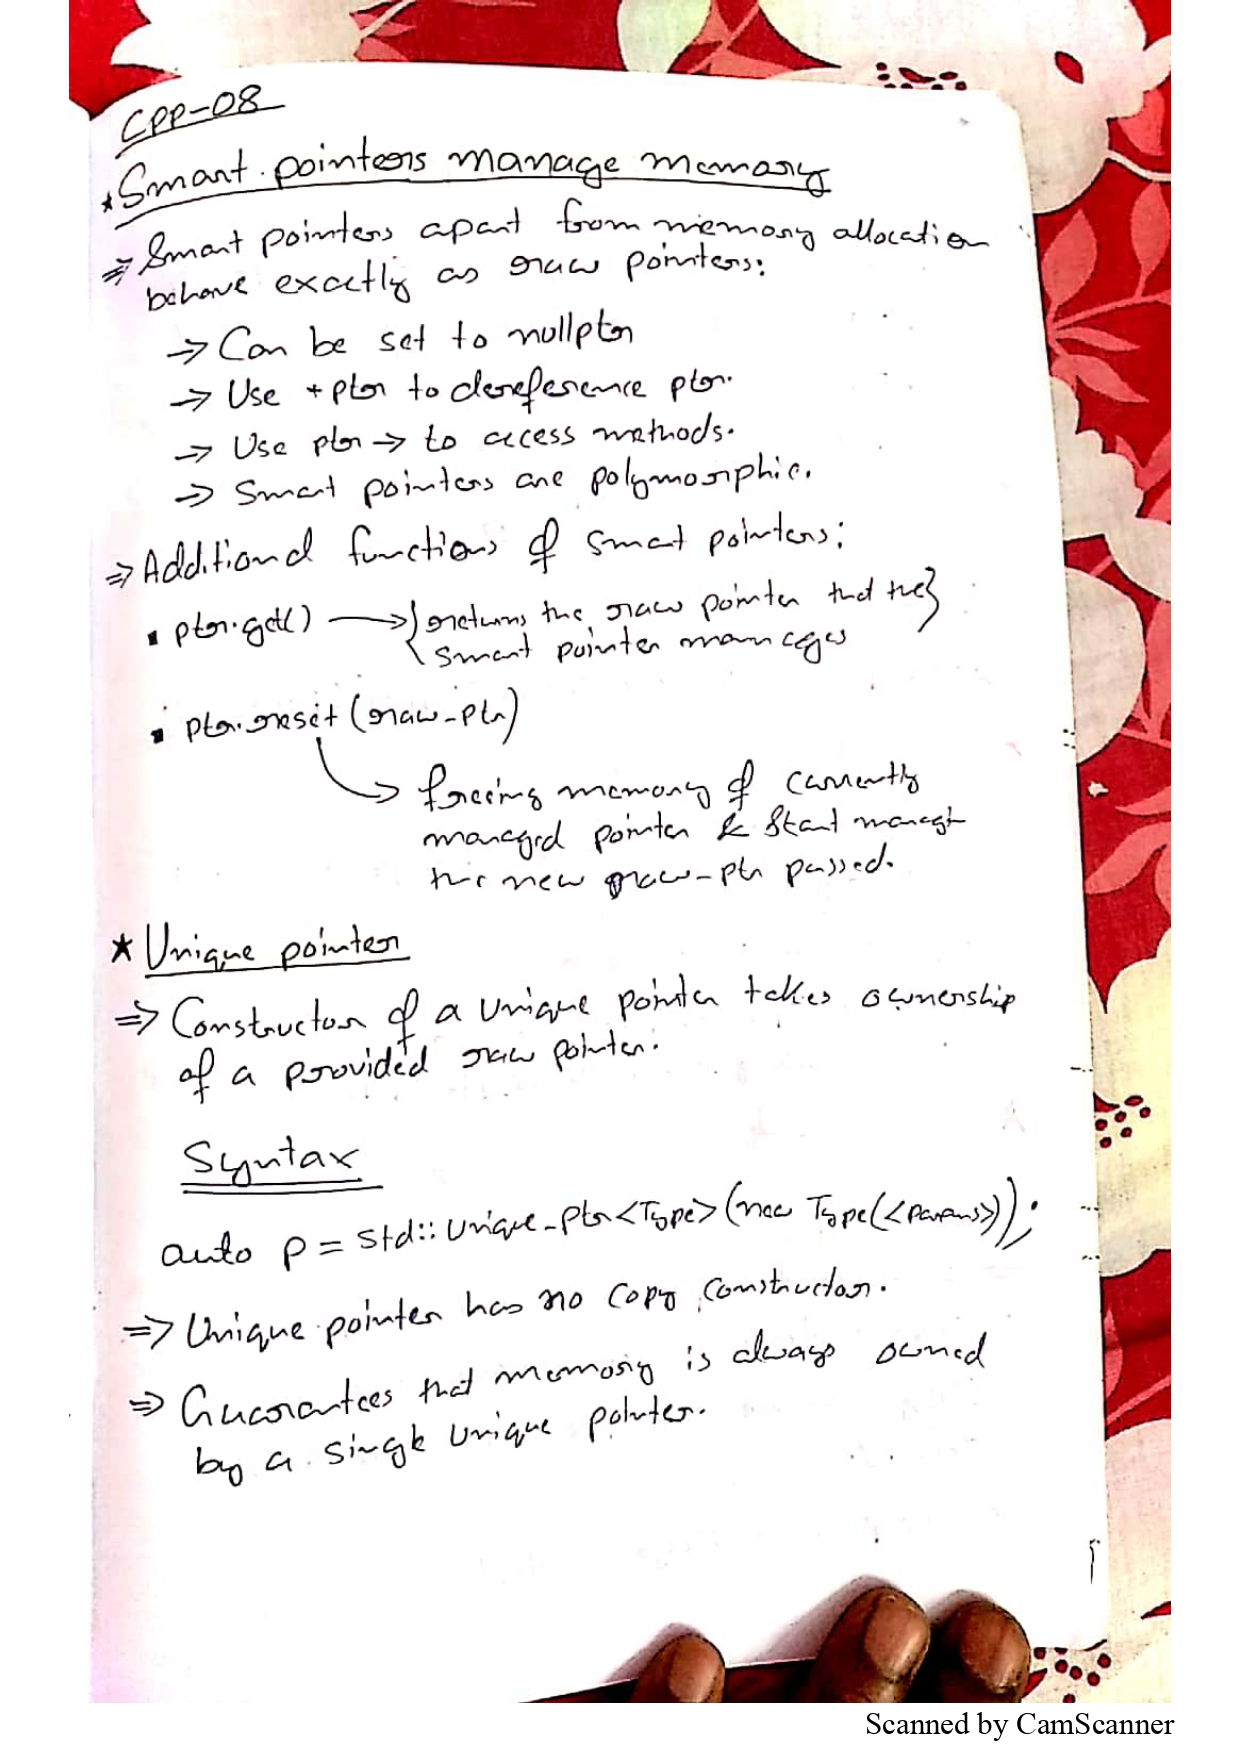 CPP-08
* Smart pointers manage memory
⇒ Smart pointers apart from memory allocation
behave exactly as raw pointers:
→ Can be set to nullptr
→ Use *ptr to dereference ptr.
→ Use ptr → to access methods.
→ Smart pointers are polymorphic.
⇒ Additional functions of smart pointers:
▪ ptr.get() → {returns the raw pointer that the}
{smart pointer manages
▪ ptr.reset(raw_ptr)
→ freeing memory of currently
managed pointer & start
the new raw_ptr passed.
★ Unique pointer
⇒ Constructor of a unique pointer takes ownership
of a provided raw pointer.
Syntax
auto p = std::unique_ptr<Type>(new Type(<Params>));
⇒ Unique pointer has no copy constructor.
⇒ Guarantees that memory is always owned
by a single unique pointer.
Scanned by CamScanner